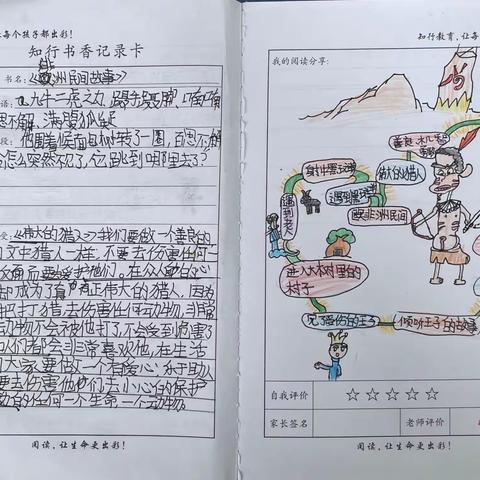 让每个孩子都出彩!
知行书香记录卡
书名:《非洲民间故事》
语: 九牛二虎之力、蹑手蹑脚、喃喃
思不解、满腹狐疑
段: 他围着猴面包树转了一圈,百思不解
怎么突然不见了,它跳到哪里去了?
受:《伟大的猎人》我们要做一个善良的
文中猎人一样,不要去伤害任何一
要爱护他们。在众人的心
成为了真正伟大的猎人,因为
把打猎去伤害任何动物,非常
动物不会被他打了,不会受到伤害了
人们都会非常喜欢他,在生活
大家要做一个有爱心、乐于助人
要去伤害他们去小心的保护
的任何一个生命一个动物。
阅读,让生命更出彩!
知行教育,让每
我的阅读分享:
善良
射中黑羚羊
伟大的猎人
遇到老人
遇到
非洲民间
进入大木对里的村子
见了受伤的王子
倾听王子的故事
自我评价 ☆ ☆ ☆ ☆ ☆
家长签名
老师评价
阅读,让生命更出彩!